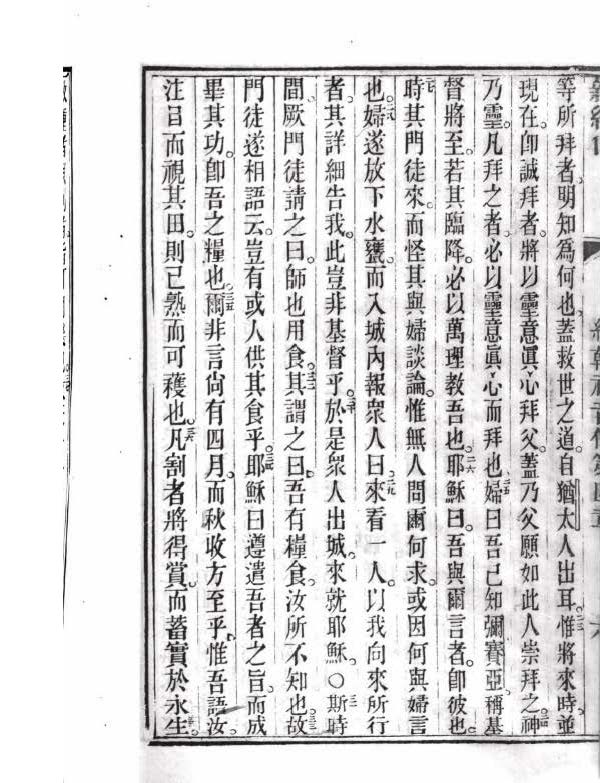 等所拜者。明知為何也。蓋救世之道。自猶太人出耳。二三惟將來時並
現在。卽誠拜者。將以靈意眞心拜父。蓋乃父願如此人崇拜之。二四神
乃靈。凡拜之者。必以靈意眞心而拜也。二五婦曰吾已知彌賽亞稱基
督將至。若其臨降。必以萬理教吾也。二六耶穌曰。吾與爾言者。卽彼也。
二七時其門徒來。而怪其與婦談論。惟無人問爾何求。或因何與婦言
也。二八婦遂放下水甕。而入城內報眾人曰。二九來看一人。以我向來所行
者。其詳細告我。此豈非基督乎。三十於是眾人出城。來就耶穌。○三一斯時
間。厥門徒請之曰。師也用食。三二其謂之曰。吾有糧食。汝所不知也。三三故
門徒遂相語云。豈有或人供其食乎。三四耶穌曰遵遣吾者之旨。而成
畢其功。卽吾之糧也。三五爾非言尙有四月。而秋收方至乎。惟吾語汝
注目而視其田。則已熟而可穫也。三六凡割者將得賞。而蓄實於永生。